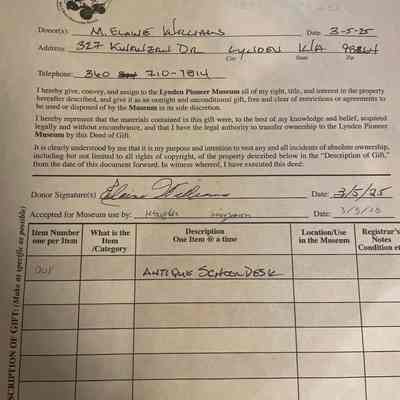 Donor(s): M. ELAINE WILLIAMS Date 3-5-25
Address 327 KWANZAN DR LYNDEN WA 98264
City State Zip
Telephone: 360 710-7814
I hereby give, convey, and assign to the Lynden Pioneer Museum all of my right, title, and interest in the property
hereafter described, and give it as an outright and unconditional gift, free and clear of restrictions or agreements to
be used or disposed of by the Museum in its sole discretion.
I hereby represent that the materials contained in this gift were, to the best of my knowledge and belief, acquired
legally and without encumbrance, and that I have the legal authority to transfer ownership to the Lynden Pioneer
Museum by this Deed of Gift.
It is clearly understood by me that it is my purpose and intention to vest any and all incidents of absolute ownership,
including but not limited to all rights of copyright, of the property described below in the "Description of Gift,"
from the date of this document forward. In witness whereof, I have executed this deed:
Donor Signature(s) Elaine Williams Date: 3/5/25
Accepted for Museum use by: Date: 3/5/25
Item Number one per Item
What is the Item /Category
Description One Item @ a time
Location/Use in the Museum
Registrar's Notes Condition et
001 ANTIQUE SCHOOL DESK
SCRIPTION OF GIFT: (Make as specific as possible)